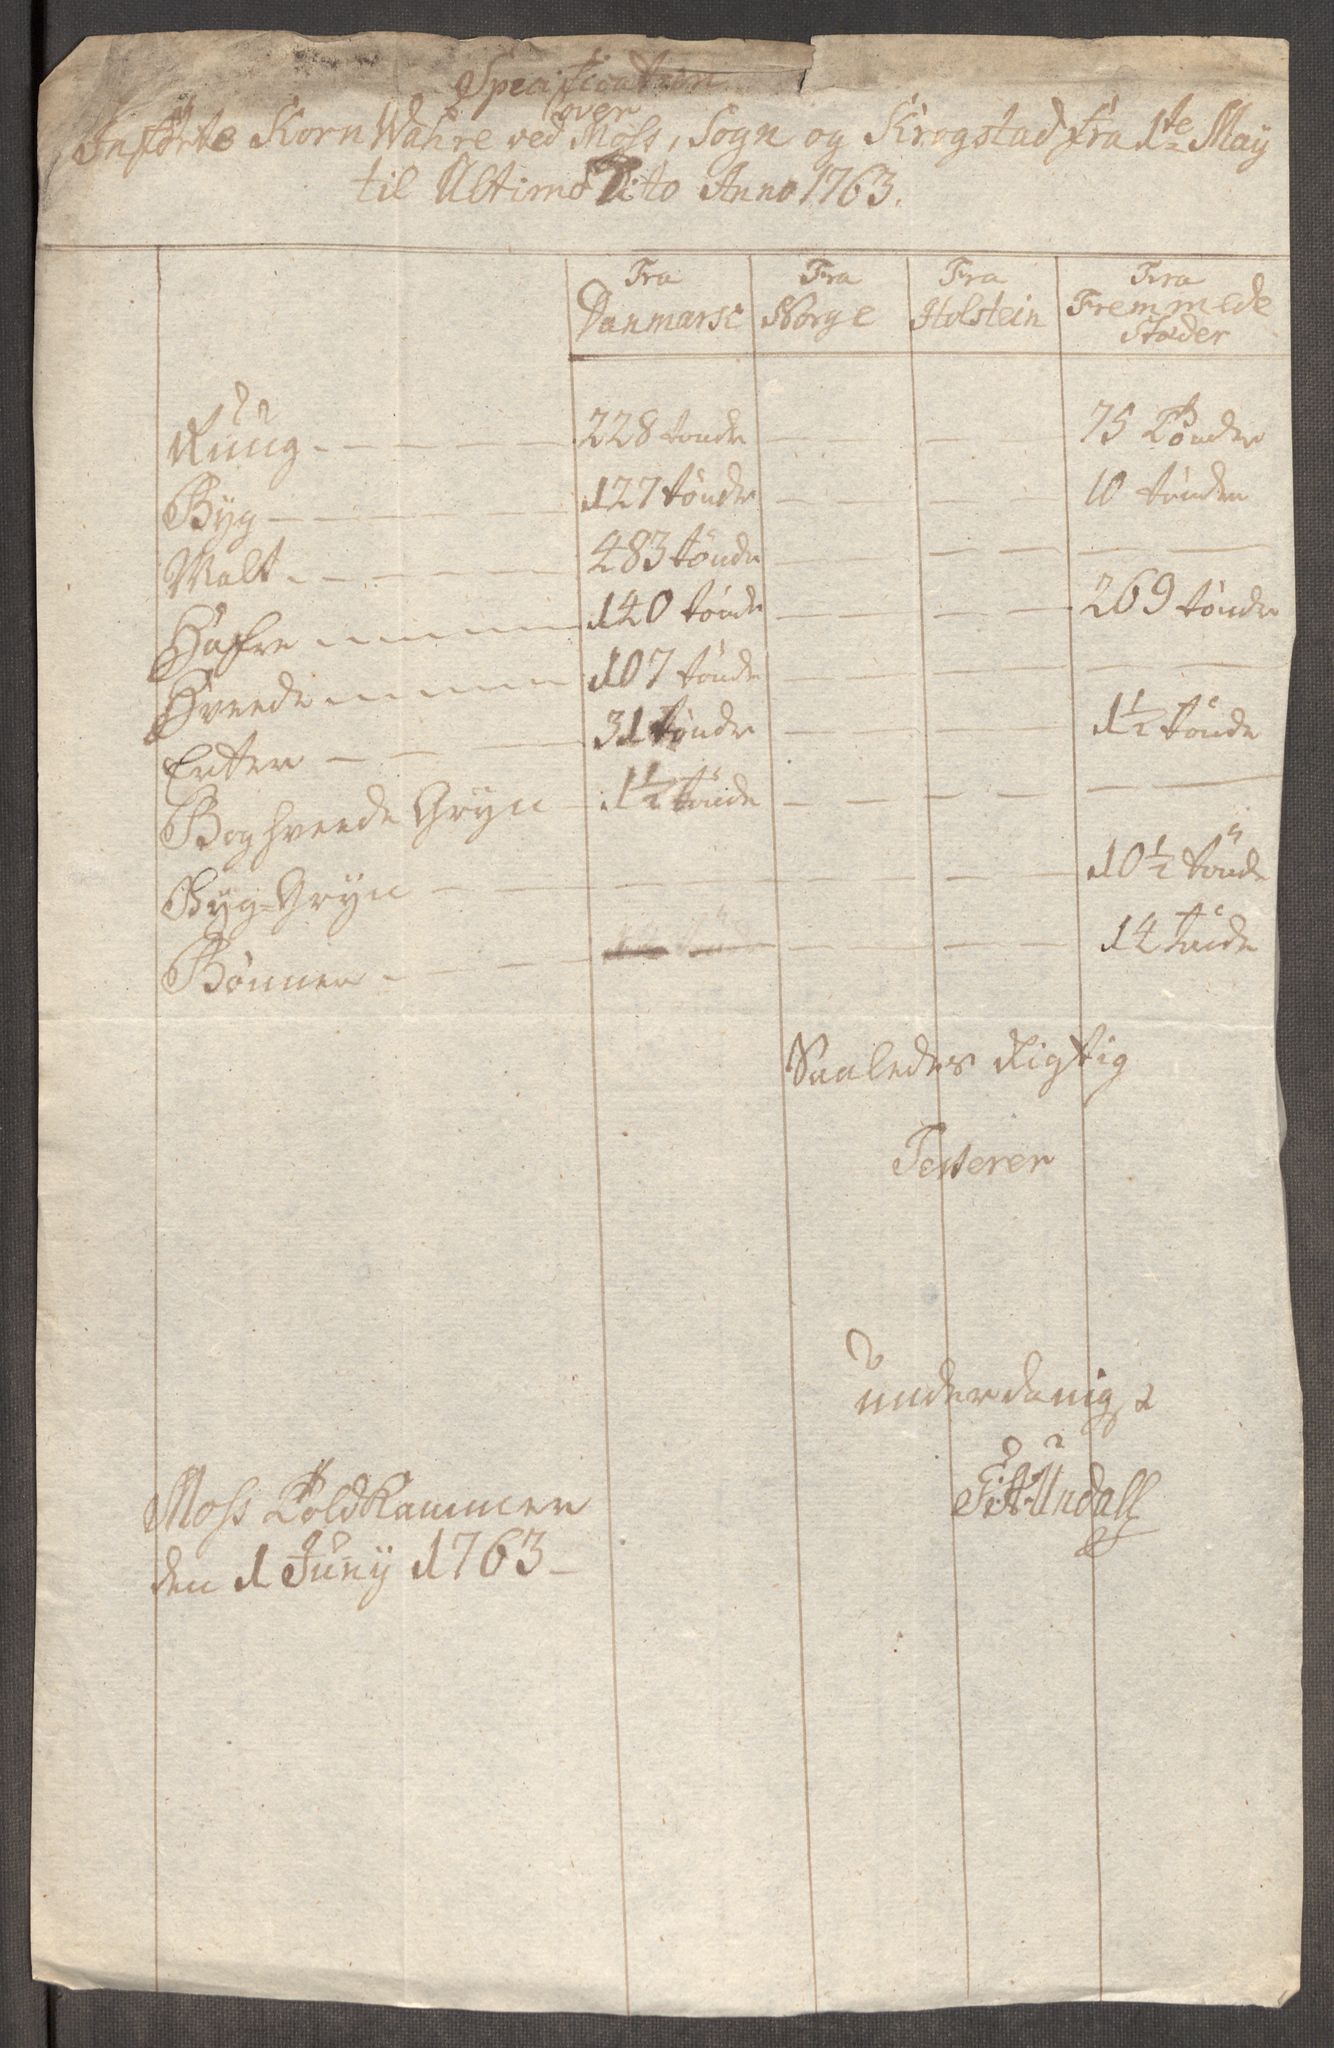 Specification
over
Inførte Korn Wahre ved Moss, Sogn og Krogstad fra 1te May
til Ultimo Dito Anno 1763.
Fra Danmarc Fra Norge Fra Holstein Fra Fremmede Stæder
Ruug - - - 228 tønder - - 75 Tønder
Byg - - - 127 tønder - - 10 tønder
Malt - - - 483 tønder - - -
Hafre - - - 140 tønde - - 269 tønder
Hveede - - - 107 tønde - - -
Erter - - 31 tønder - - 1½ tønde
Boghveede Gryn - 1½ tønde - - -
Byg-Gryn - - - - 10½ tønde
Bønner - - - - 14 tønde
Saaledes Rigtig
Testerer
underdanigst
Undall
Moss Toldkammer
den 1 Juny 1763 -